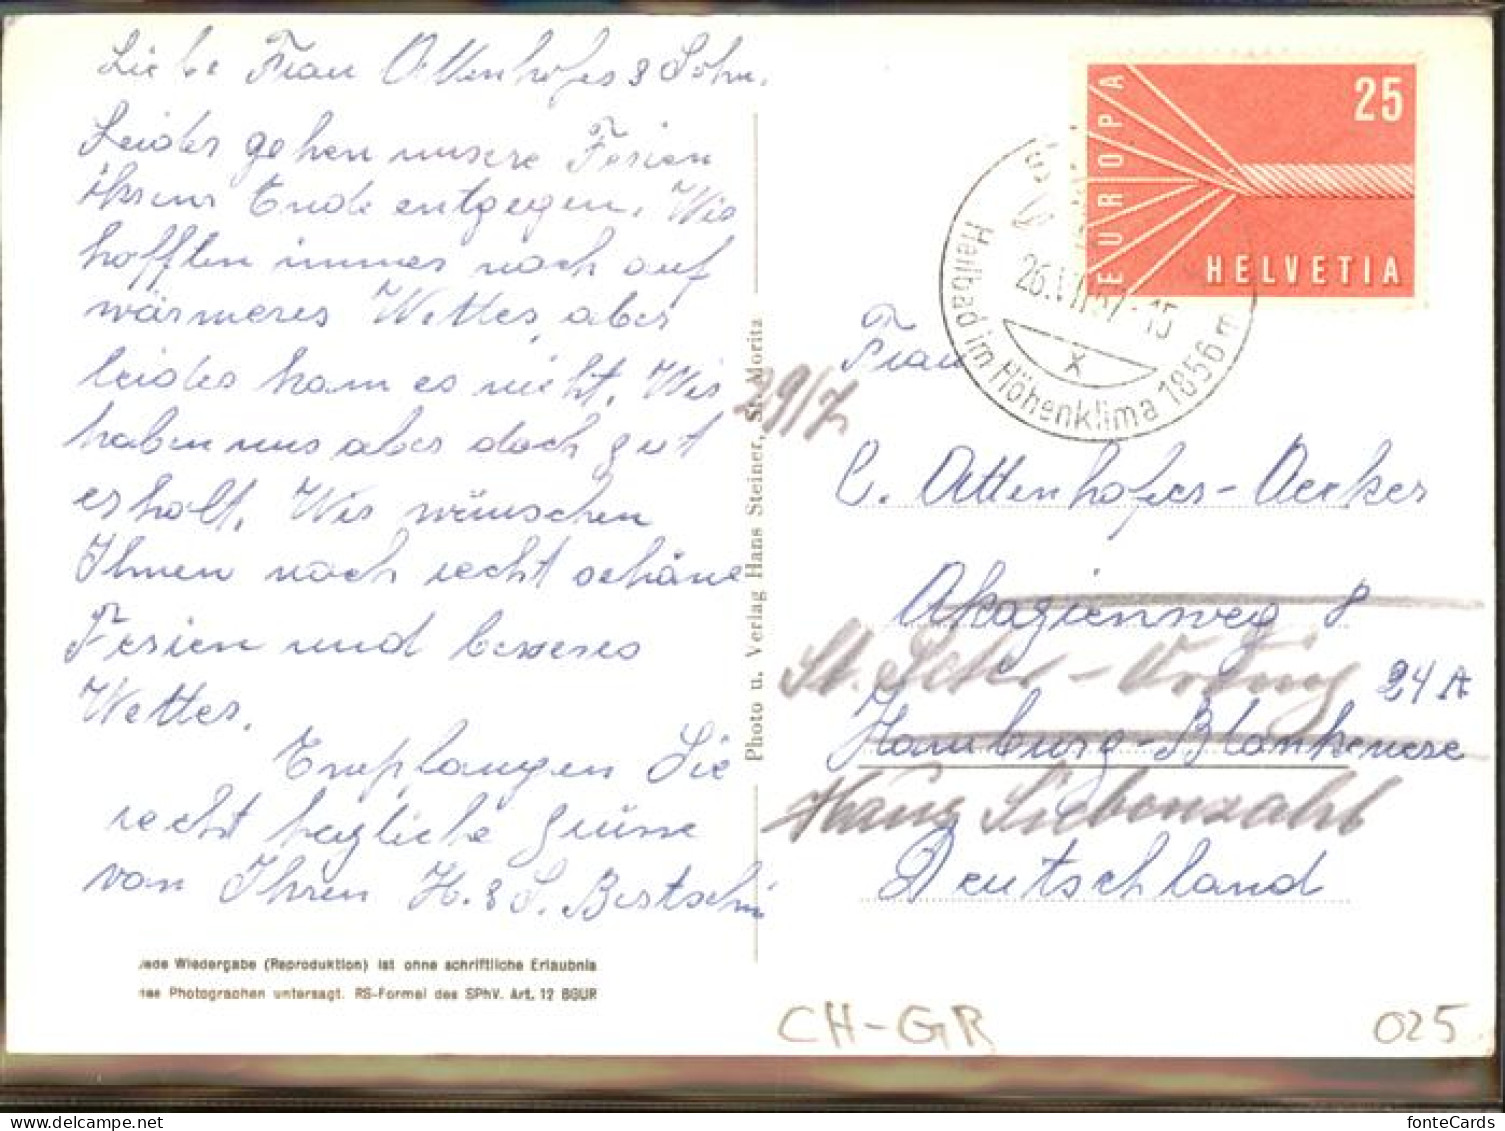 Liebe Frau Attenhofer & Sohn.
Leider gehen unsere Ferien
ihrem Ende entgegen. Wir
hofften immer noch auf
wärmeres Wetter, aber
leider kam es nicht. Wir
haben uns aber doch gut
erholt. Wir wünschen
Ihnen noch recht schöne
Ferien und besseres
Wetter.
Empfangen Sie
recht herzliche Grüsse
von Ihren H. & S. Bertschi
Jede Wiedergabe (Reproduktion) ist ohne schriftliche Erlaubnis
des Photographen untersagt. RS-Formel des SPhV. Art. 12 BGUR
Photo u. Verlag Hans Steiner, St. Moritz
EUROPA
25
HELVETIA
26.VII.57-15
X
Heilbad im Höhenklima 1856 m
29/7
Frau
C. Attenhofer-Aecker
Akazienweg 8
St. Peter-Ording 24A
Hamburg-Blankenese
Haus Siebenzahl
Deutschland
CH-GR
025
fonteCards